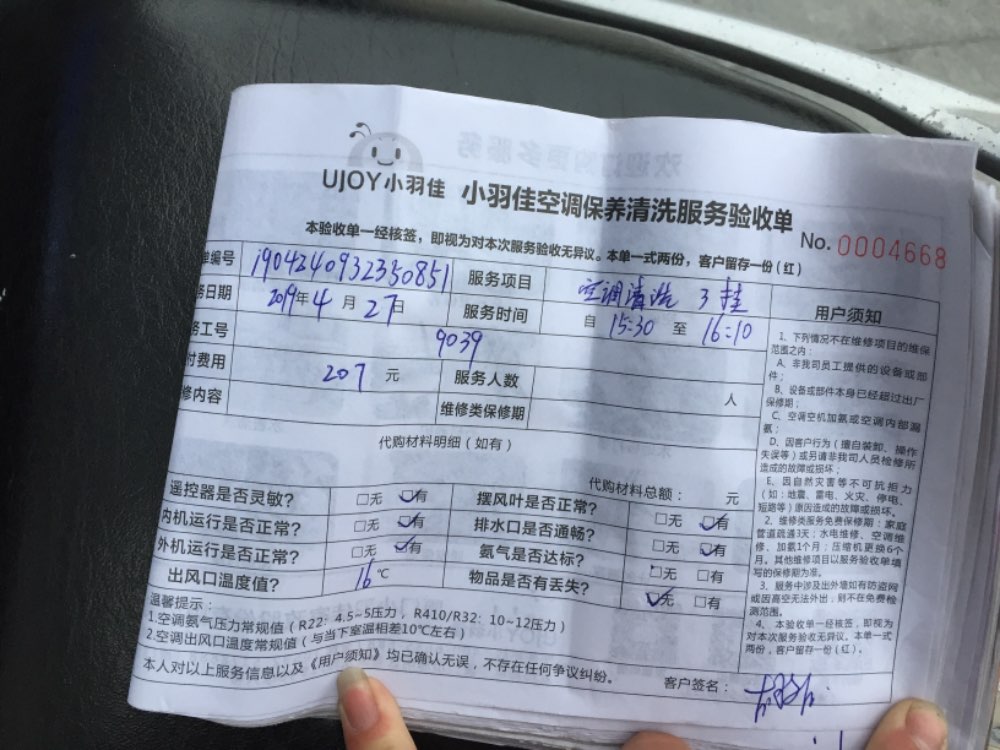 欢迎订购更多服务
UJOY小羽佳 小羽佳空调保养清洗服务验收单
本验收单一经核签，即视为对本次服务验收无异议。本单一式两份，客户留存一份(红)
No. 0004668
单编号 1904240932350851 服务项目 空调清洗 3挂
务日期 2019年4月27日 服务时间 自 15:30 至 16:10
务工号 9039
付费用 207 元 服务人数 人
修内容 维修类保修期
代购材料明细(如有)
代购材料总额： 元
遥控器是否灵敏? □无 ☑有 摆风叶是否正常? □无 ☑有
内机运行是否正常? □无 ☑有 排水口是否通畅? □无 ☑有
外机运行是否正常? □无 ☑有 氨气是否达标? □无 □有
出风口温度值? 16℃ 物品是否有丢失? ☑无 □有
温馨提示：
1.空调氨气压力常规值(R22：4.5~5压力，R410/R32：10~12压力)
2.空调出风口温度常规值(与当下室温相差10℃左右)
本人对以上服务信息以及《用户须知》均已确认无误，不存在任何争议纠纷。
客户签名：
用户须知
1、下列情况不在维修项目的维保
范围之内：
A、非我司员工提供的设备或部
件；
B、设备或部件本身已经超过出厂
保修期；
C、空调空机加氨或空调内部漏
氨；
D、因客户行为(擅自装卸、操作
失误等)或另请非我司人员检修所
造成的故障或损坏；
E、因自然灾害等不可抗拒力
(如：地震、雷电、火灾、停电、
短路等)原因造成的故障或损坏。
2、维修类服务免费保修期：家庭
管道疏通3天；水电维修、空调维
修、加氨1个月；压缩机更换6个
月。其他维修项目以服务验收单填
写的保修期为准。
3、服务中涉及出外墙如有防盗网
或因高空无法外出，则不在免费检
测范围。
4、本验收单一经核签，即视为
对本次服务验收无异议。本单一式
两份，客户留存一份(红)。